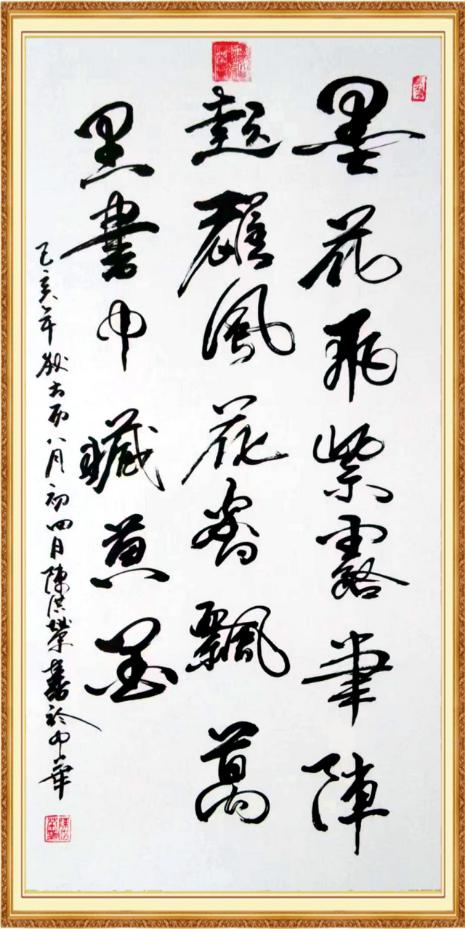 墨花飛紫露筆陣
起雄風花香飄萬
里書中藏
己亥年八月初四日陳洪榮書於中華